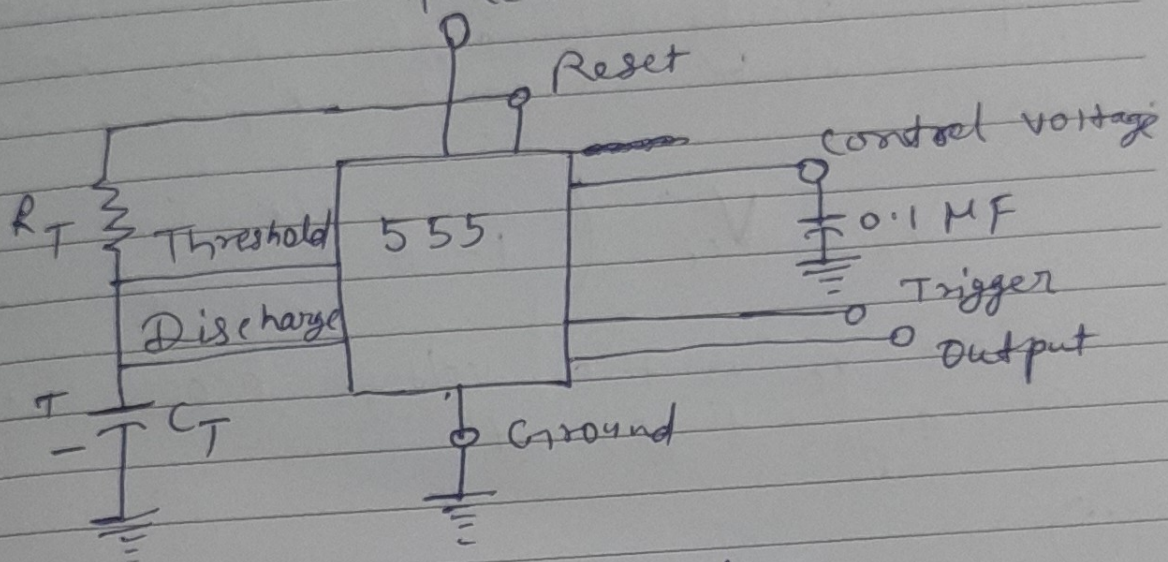 Reset
Control voltage
RT
Threshold
555
0.1 MF
Discharge
Trigger
Output
+
CT
-
Ground